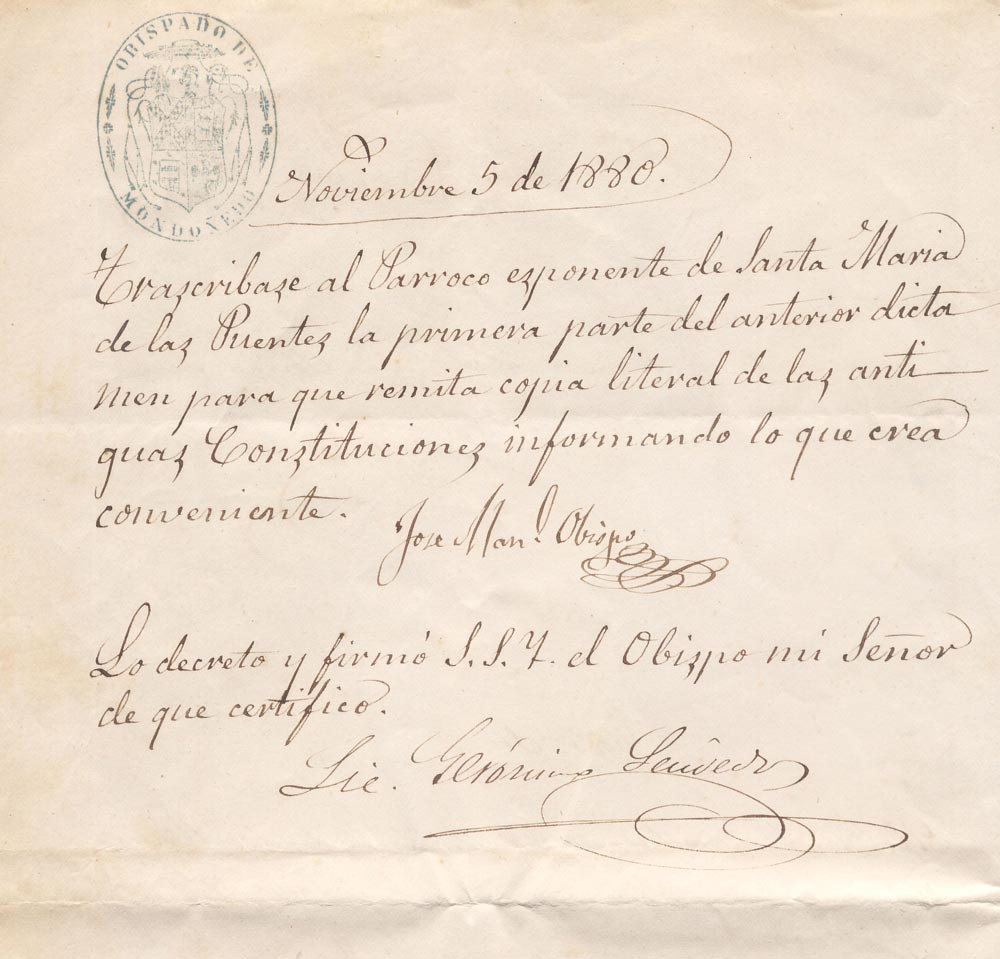 OBISPADO DE
MONDOÑEDO
Noviembre 5 de 1880.
Trascribase al Parroco esponente de Santa Maria
de las Puentes la primera parte del anterior dicta
men para que remita copia literal de las anti
guas Constituciones informando lo que crea
conveniente.
Jose Man.l Obispo
Lo decreto y firmó S.S.Y. el Obispo mi Señor
de que certifico.
Lic. Gerónimo